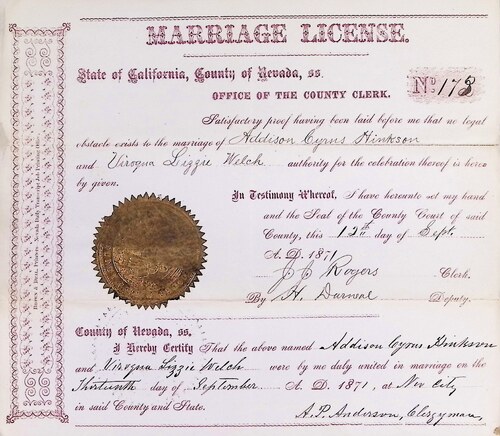 MARRIAGE LICENSE.
State of California, County of Nevada, ss.
OFFICE OF THE COUNTY CLERK.
No. 178
Satisfactory proof having been laid before me that no legal
obstacle exists to the marriage of Addison Cyrus Hinkson
and Viroqua Lizzie Welch authority for the celebration thereof is here-
by given.
In Testimony Whereof, I have hereunto set my hand
and the Seal of the County Court of said
County, this 12th day of Sept.
A. D. 1871
J J Rogers Clerk.
By H. Deputy.
County of Nevada, ss.
I Hereby Certify That the above named Addison Cyrus Hinkson
and Viroqua Lizzie Welch were by me duly united in marriage on the
Thirteenth day of September A. D. 1871, at Nev City
in said County and State.
A. P. Anderson, Clergyman,